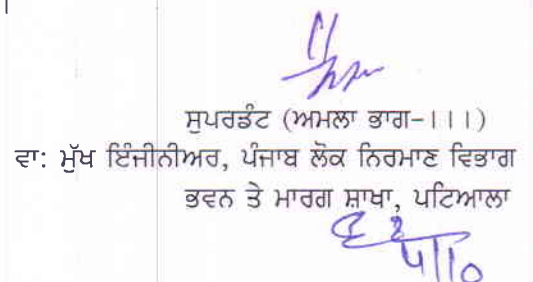 ਸੁਪਰਡੰਟ (ਅਮਲਾ ਭਾਗ-।।।)
ਵਾ: ਮੁੱਖ ਇੰਜੀਨੀਅਰ, ਪੰਜਾਬ ਲੋਕ ਨਿਰਮਾਣ ਵਿਭਾਗ
ਭਵਨ ਤੇ ਮਾਰਗ ਸ਼ਾਖਾ, ਪਟਿਆਲਾ